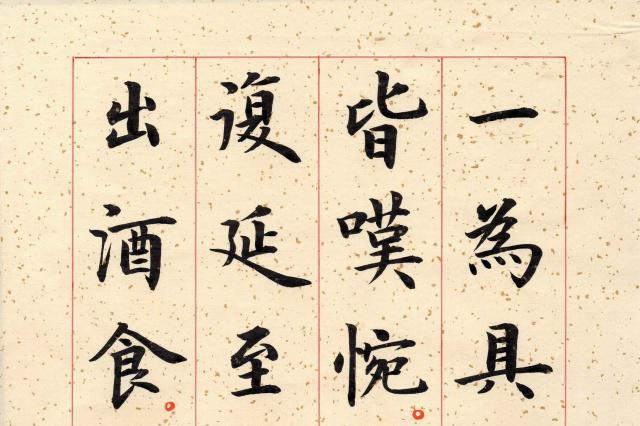 一為具
皆嘆惋。
復延至
出酒食。